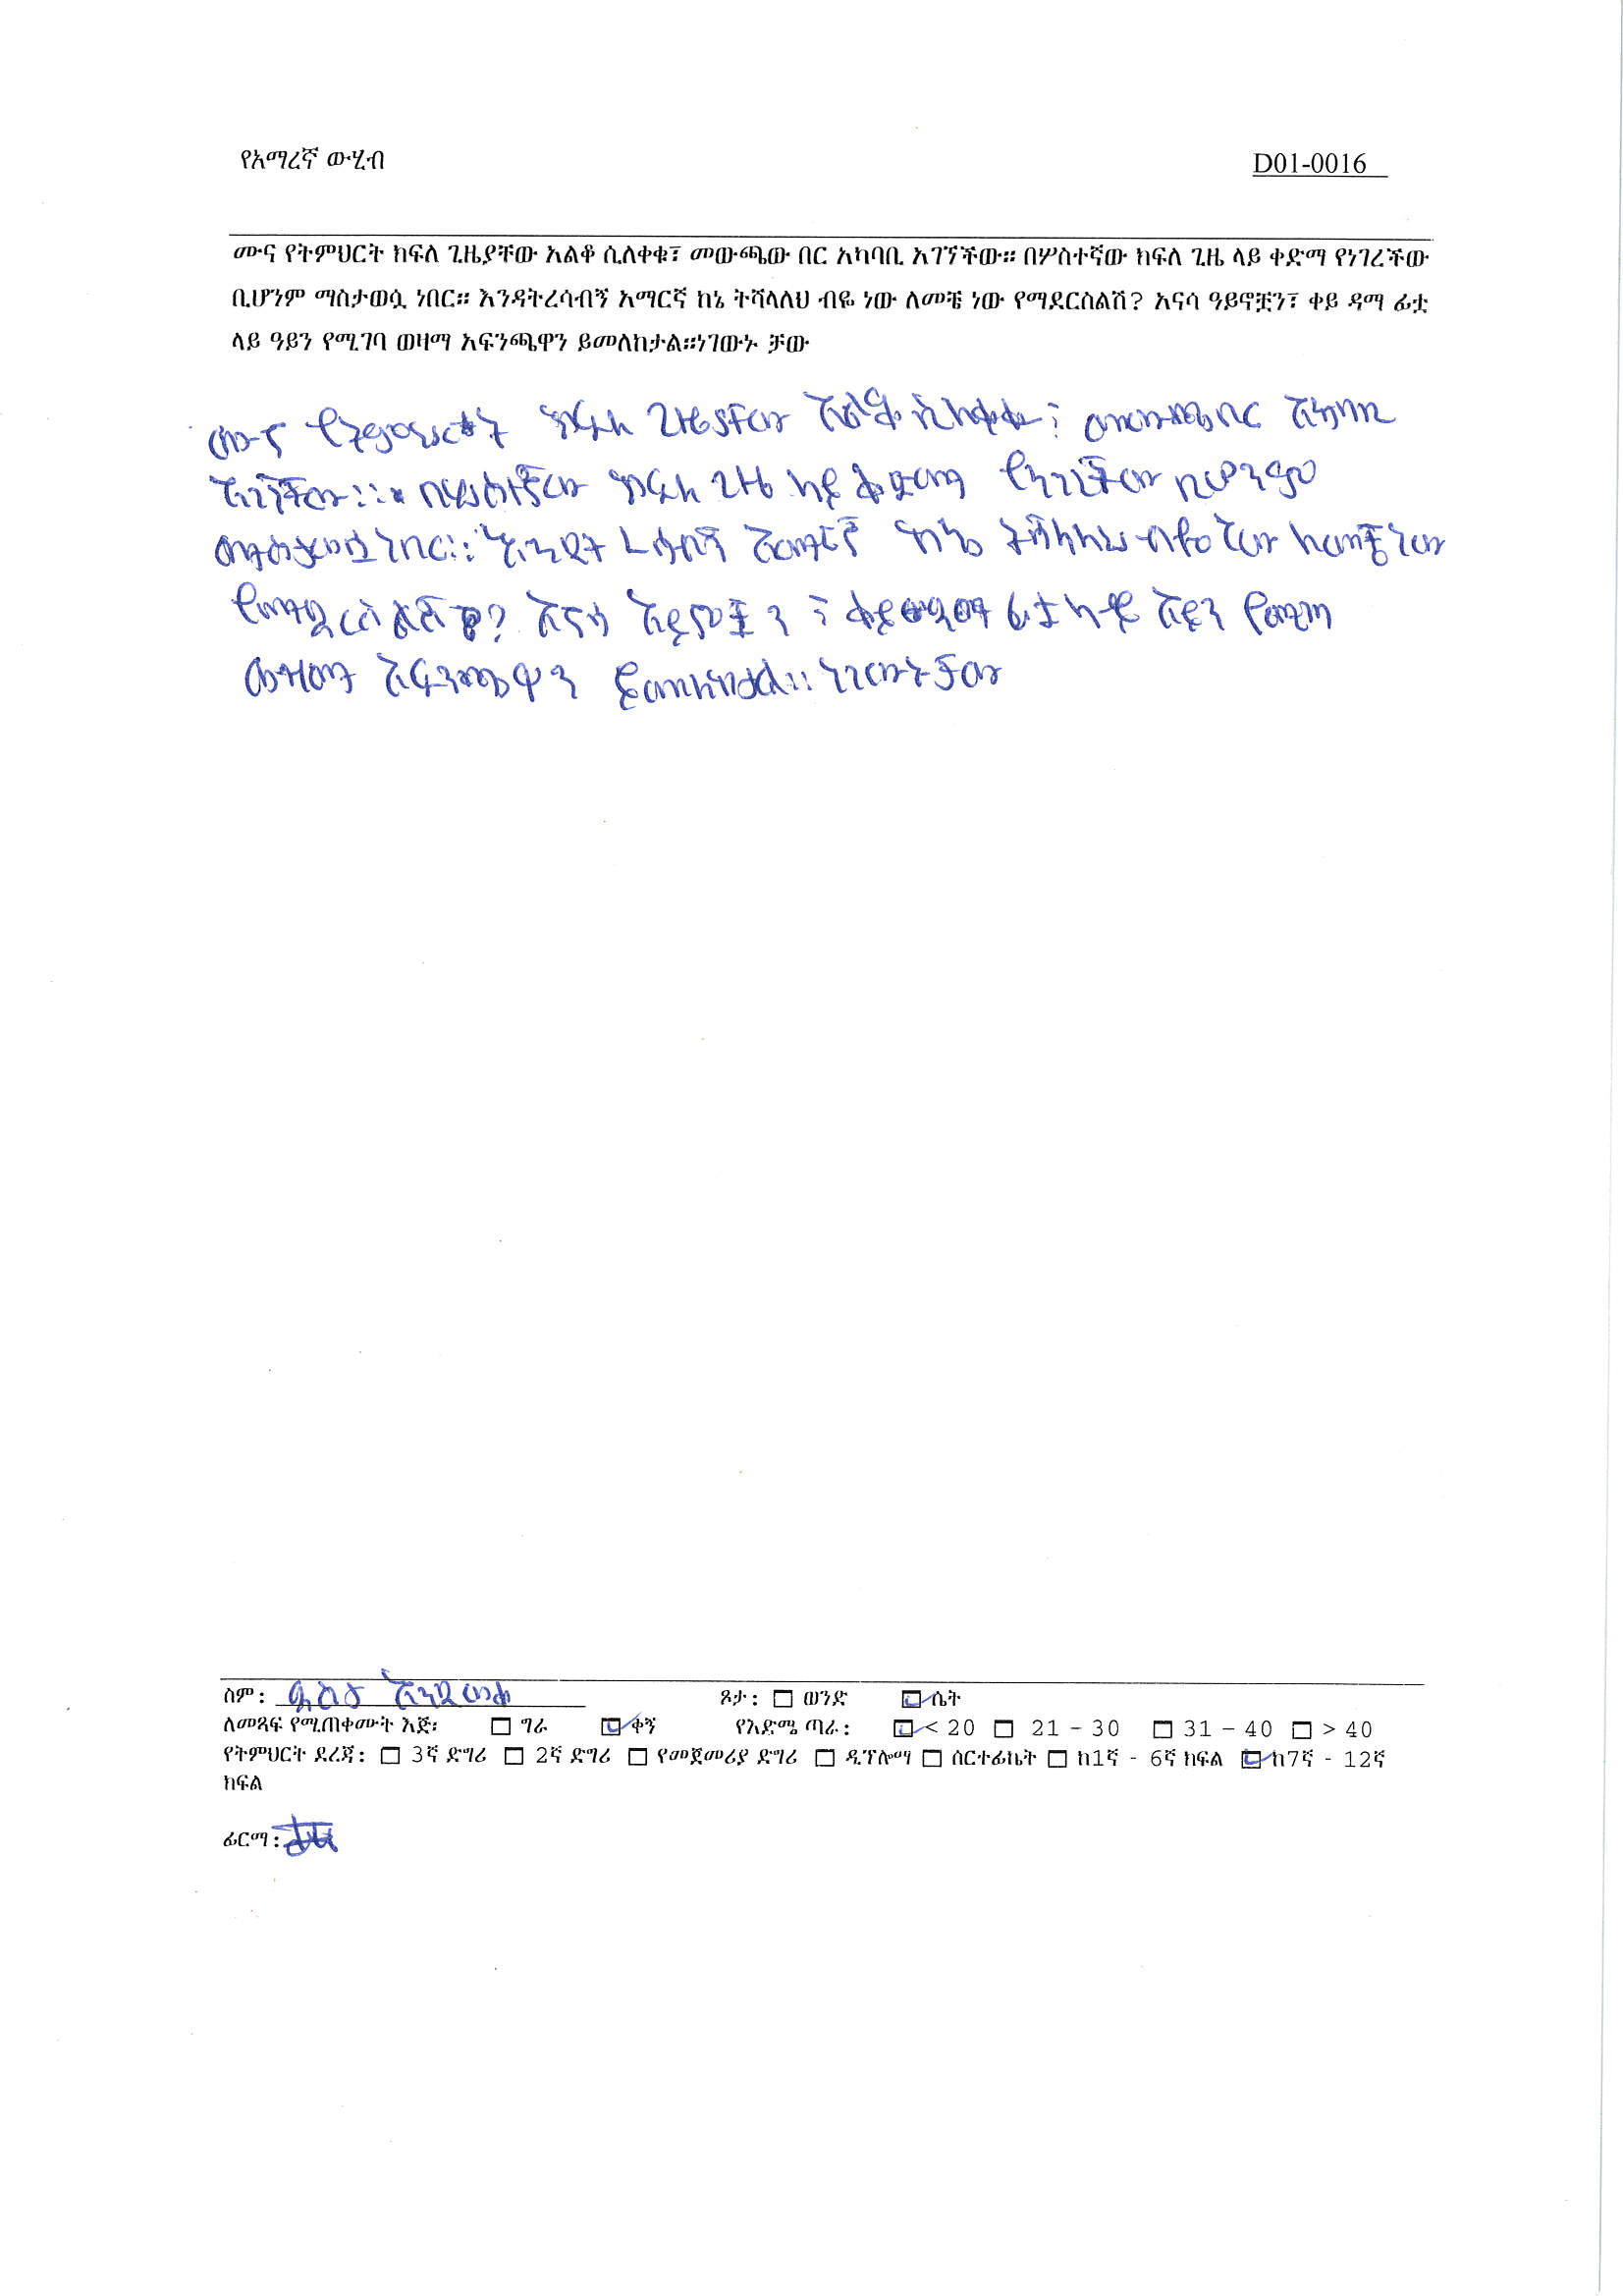 የአማረኛ ውሂብ D01-0016
ሙና የትምህርት ክፍለ ጊዜያቸው አልቆ ሲለቀቁ፣ መውጫው በር አካባቢ አገኘችው። በሦስተኛው ክፍለ ጊዜ ላይ ቀድማ የነገረችው
ቢሆንም ማስታወሷ ነበር። እንዳትረሳብኝ አማርኛ ከኔ ትሻላለህ ብዬ ነው ለመቼ ነው የማደርስልሽ? አናሳ ዓይኖቿን፣ ቀይ ዳማ ፊቷ
ላይ ዓይን የሚገባ ወዛማ አፍንጫዋን ይመለከታል።ነገውኑ ቻው
ሙና የትምህርት ክፍለ ጊዜያቸው አልቆ ሲለቀቁ፣ መውጫው በር አካባቢ
አገኘችው።። በሦስተኛው ክፍለ ጊዜ ላይ ቀድማ የነገረችው ቢሆንም
ማስታወሷ ነበር።። እንዳትረሳብኝ አማርኛ ከኔ ትሻላለህ ብዬ ነው ለመቼ ነው
የማደርስልሽ? አናሳ አይኖቿን ፣ ቀይ ዳማ ፊቷ ላይ አይን የሚገባ
ወዛማ አፍንጫዋን ይመለከታል።። ነገውኑ ቻው
ስም: አንዷወቅ ጾታ: ወንድ ሴት
ለመጻፍ የሚጠቀሙት እጅ፡ ግራ ቀኝ የእድሜ ጣራ: < 20 21 – 30 31 – 40 > 40
የትምህርት ደረጃ: 3ኛ ድግሪ 2ኛ ድግሪ የመጀመሪያ ድግሪ ዲፕሎማ ሰርተፊኬት ከ1ኛ - 6ኛ ክፍል ከ7ኛ - 12ኛ
ክፍል
ፊርማ: